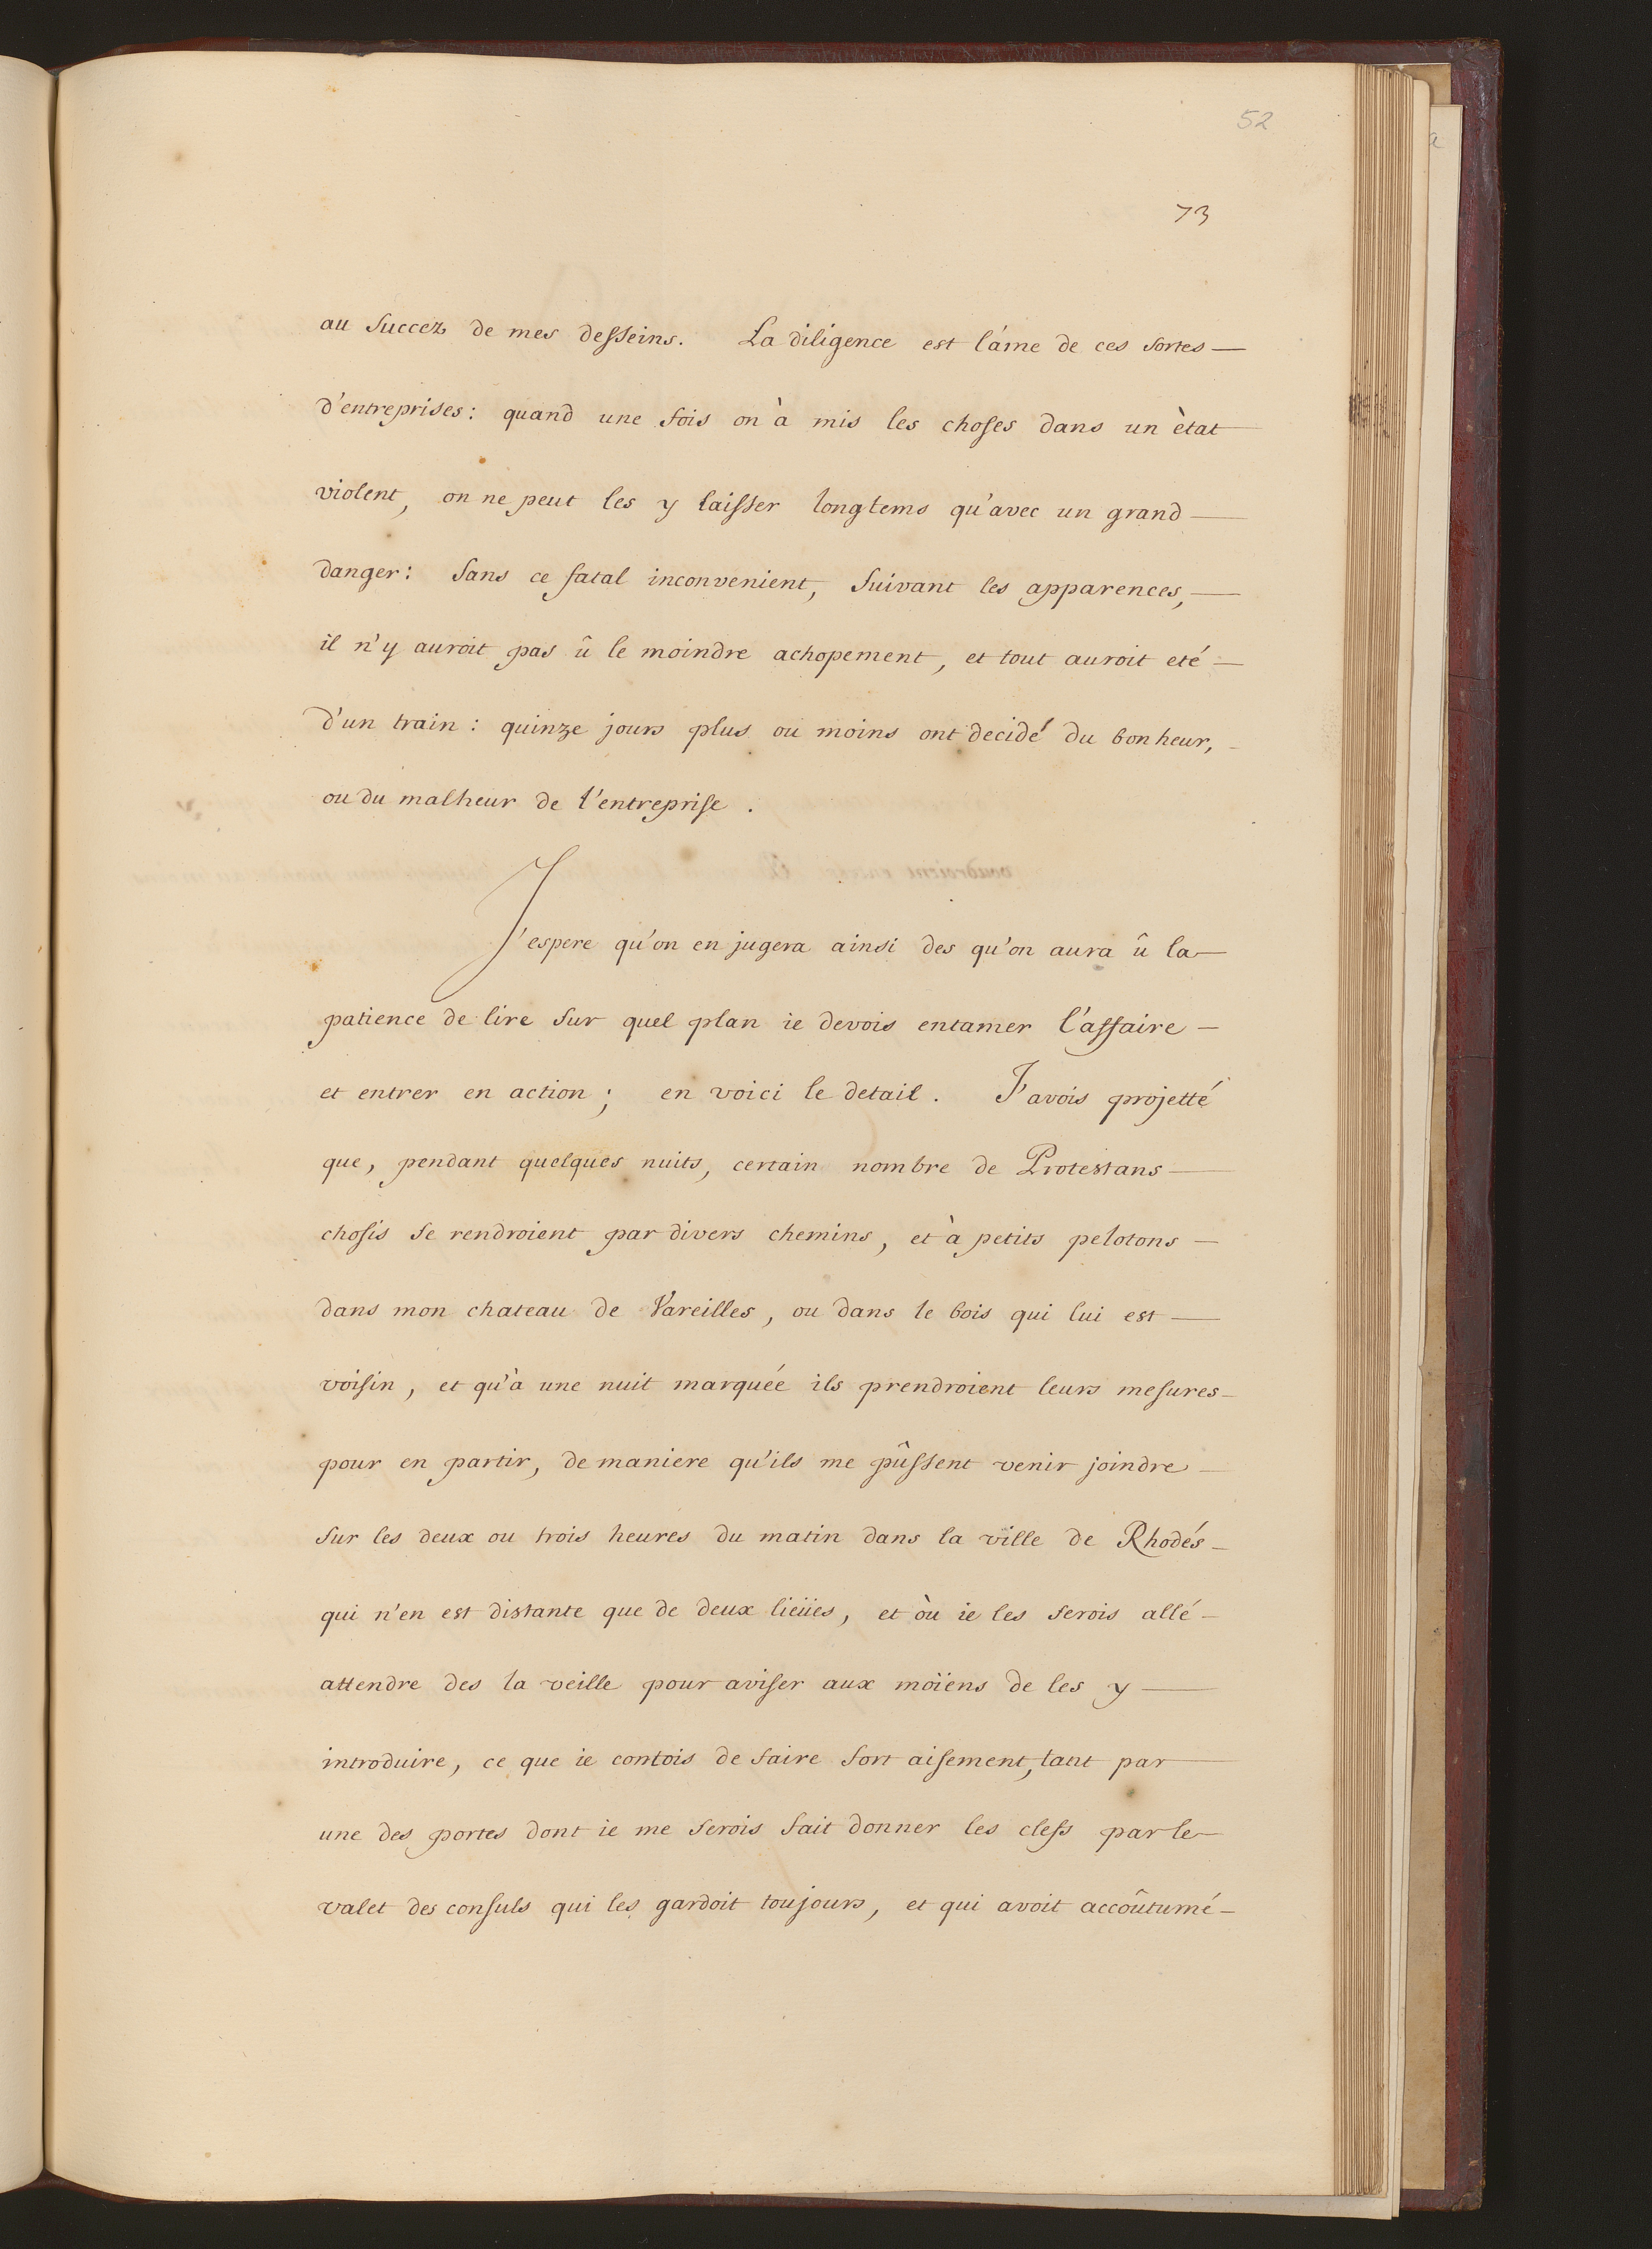 52
73
au succez de mes desseins. La diligence est l'áme de ces sortes —
d'entreprises: quand une fois on à mis les choses dans un ètat —
violent, on ne peut les y laisser longtems qu'avec un grand —
danger: sans ce fatal inconvenient, suivant les apparences, —
il n'y auroit pas û le moindre achopement, et tout auroit eté —
d'un train: quinze jours plus ou moins ont decidé du bonheur, —
ou du malheur de l'entreprise.
J'espere qu'on en jugera ainsi des qu'on aura û la —
patience de lire sur quel plan ie devois entamer l'affaire —
et entrer en action; en voici le detail. J'avois projetté
que, pendant quelques nuits, certain nombre de Protestans —
chosis se rendroient par divers chemins, et à petits pelotons —
dans mon chateau de Vareilles, ou dans le bois qui lui est —
voisin, et qu'à une nuit marquée ils prendroient leurs mesures —
pour en partir, de maniere qu'ils me pûssent venir joindre —
sur les deux ou trois heures du matin dans la ville de Rhodés —
qui n'en est distante que de deux lieües, et òu ie les serois allé —
attendre des la veille pour aviser aux moïens de les y —
introduire, ce que ie contois de faire fort aisement, tant par —
une des portes dont ie me serois fait donner les clefs par le —
valet des consuls qui les gardoit toujours, et qui avoit accoûtumé —